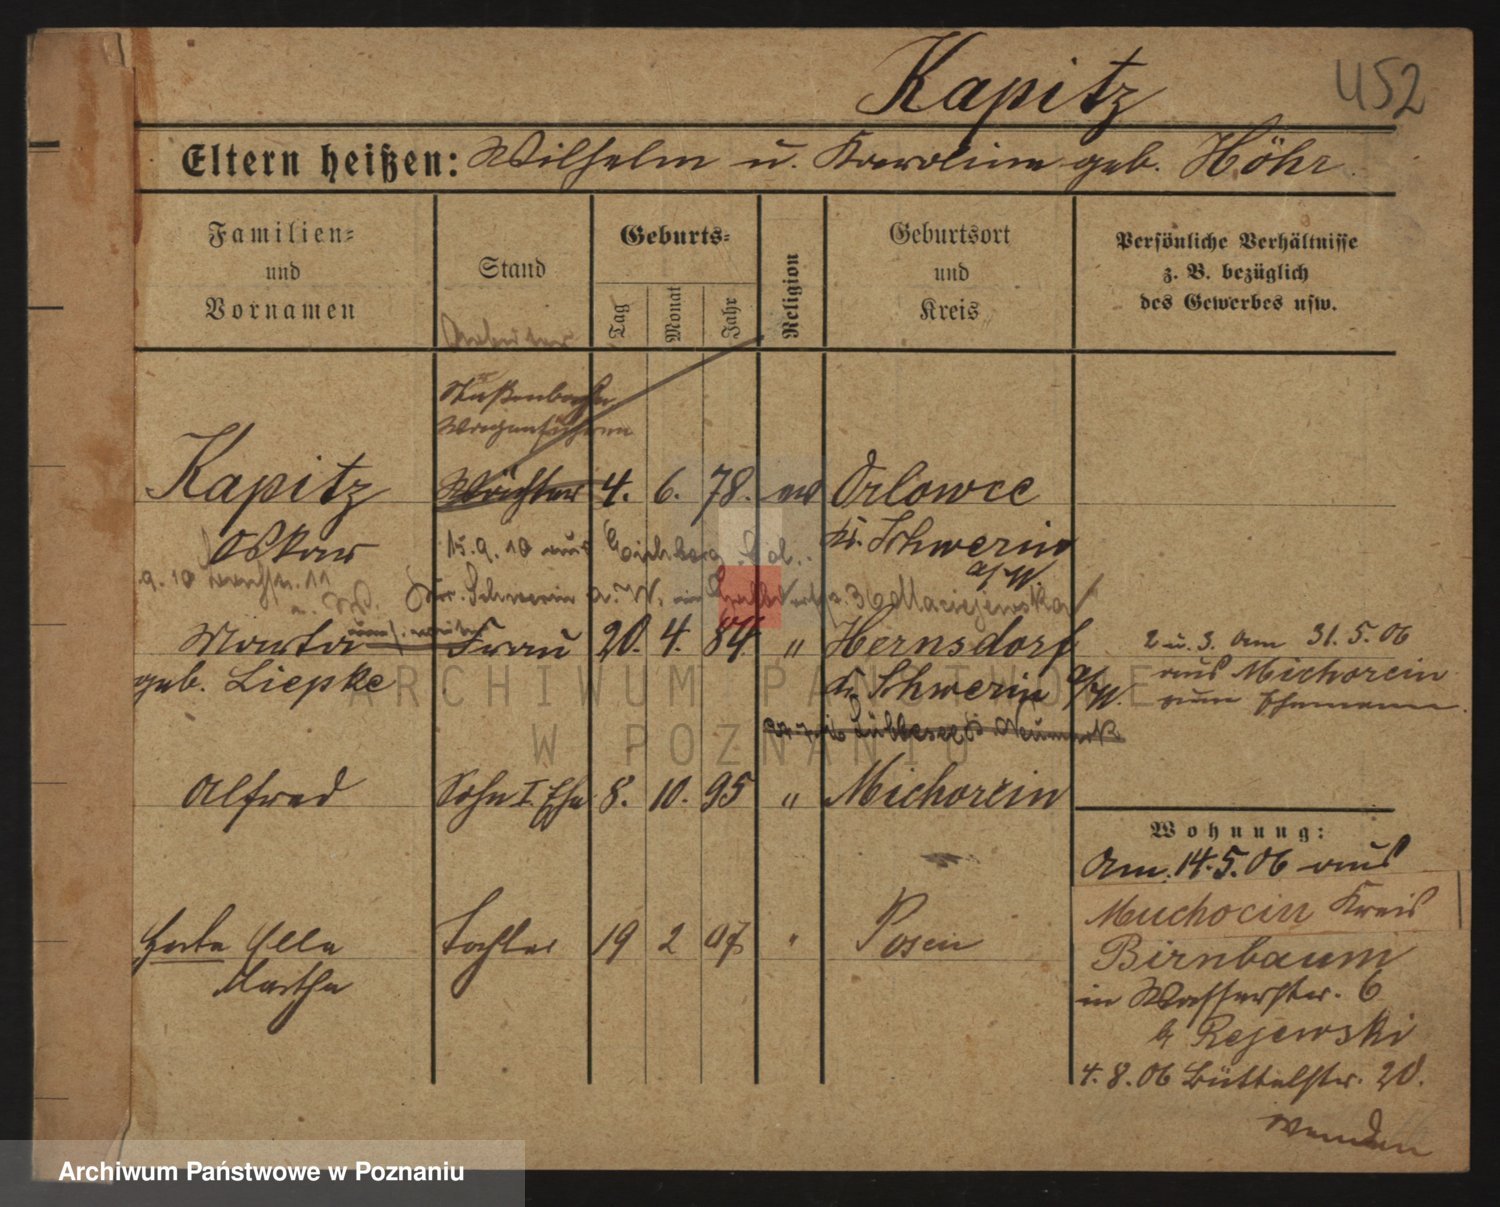 Kapitz
452
Eltern heißen: Wilhelm u. Karoline geb. Höhr
Familien- und Vornamen
Stand
Geburts-
Tag
Monat
Jahr
Religion
Geburtsort und Kreis
Persönliche Verhältnisse
z. B. bezüglich
des Gewerbes usw.
Arbeiter
Straßenbahn
Wagenführer
Kapitz Wächter 4. 6. 78. ev Orlowce
Oskar Kr. Schwerin a/W.
15.9.10 aus
9. 10
Schwerin a. W. in 36 Maciejewska
Marta Frau 20. 4. 84. " Hernsdorf
geb. Liepke Kr. Schwerin a/W.
2 u. 3. am 31.5.06
aus Michorcin
zum Ehemann.
Neumark
Alfred Sohn I. Ehe 8. 10. 95 " Michorcin
Wohnung:
Am. 14.5.06 aus
Muchocin Kreis
Birnbaum
in Wasserstr. 6
b Rejewski
4.8.06 Büttelstr. 20.
wenden
Herta Ella Tochter 19 2 07 " Posen
Martha
ARCHIWUM PAŃSTWOWE
W POZNANIU
Archiwum Państwowe w Poznaniu